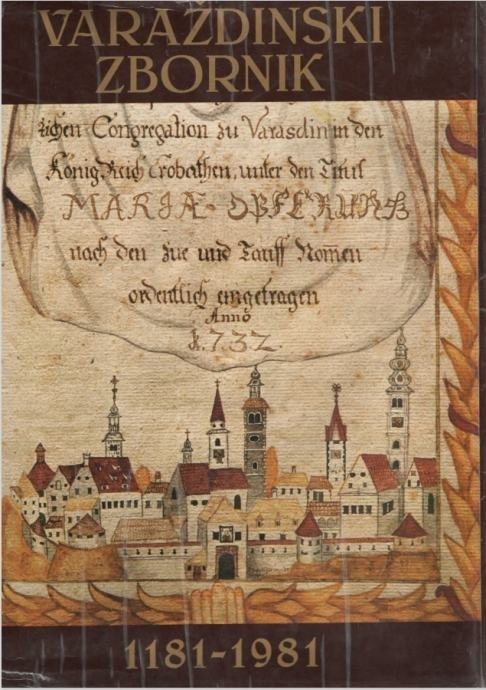 VARAŽDINSKI
ZBORNIK
zlichen Congregation zu Varasdin in den
König Reich Crobathen, unter den Titul
MARIÆ OPFERUNG
nach den Zue und Tauff Nom̄en
ordentlich eingetragen
Anno
1.732.
1181-1981